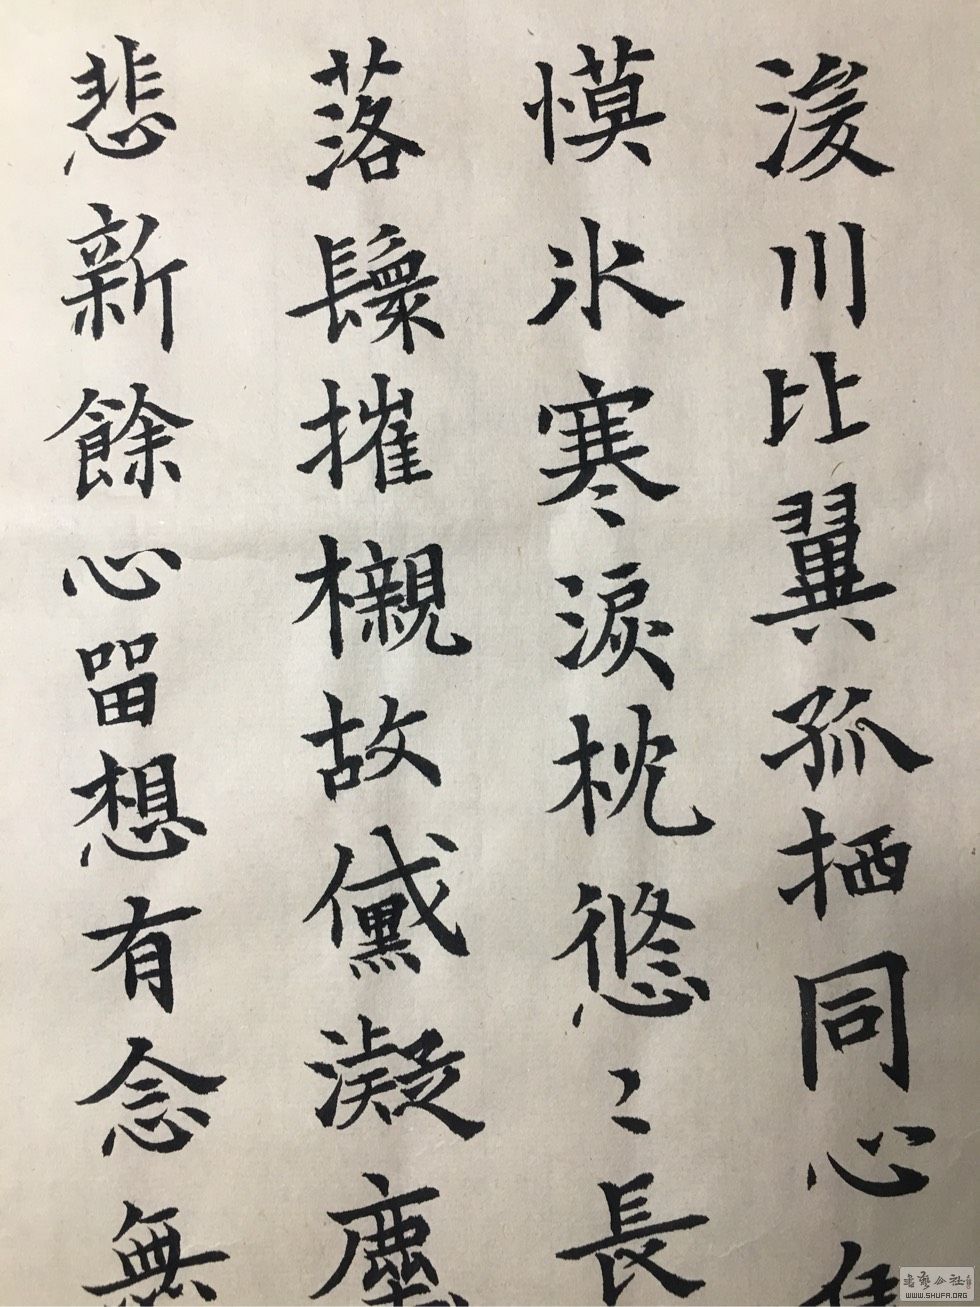 浚川比翼孤栖同心
慔氷寒淚枕悠〻長
落鬟摧櫬故黛凝塵
悲新餘心留想有念無
WWW.SHUFA.ORG